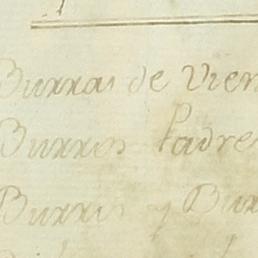 Burras de Vien
Burros Padre
Burros y Bur